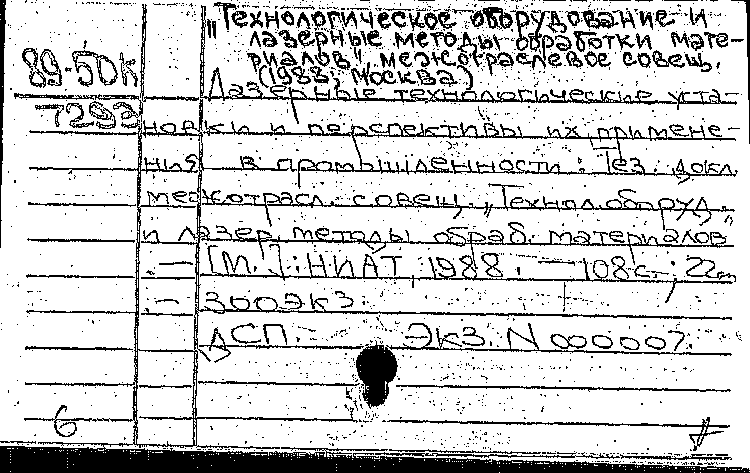 „Технологическое оборудование и
лазерные методы обработки мате-
риалов", межотраслевое совещ.
(1988; Москва)
89-50к
7293
Лазерные технологические уста-
новки и перспективы их примене-
ния в промышленности: Тез. докл.
межотрасл. совещ. „Технол. оборуд.
и лазер. методы обраб. материалов"
.— [М.]: НИАТ, 1988. — 108 с.; 22 см
.— 300 экз.
ДСП. — Экз. N 000007.
6